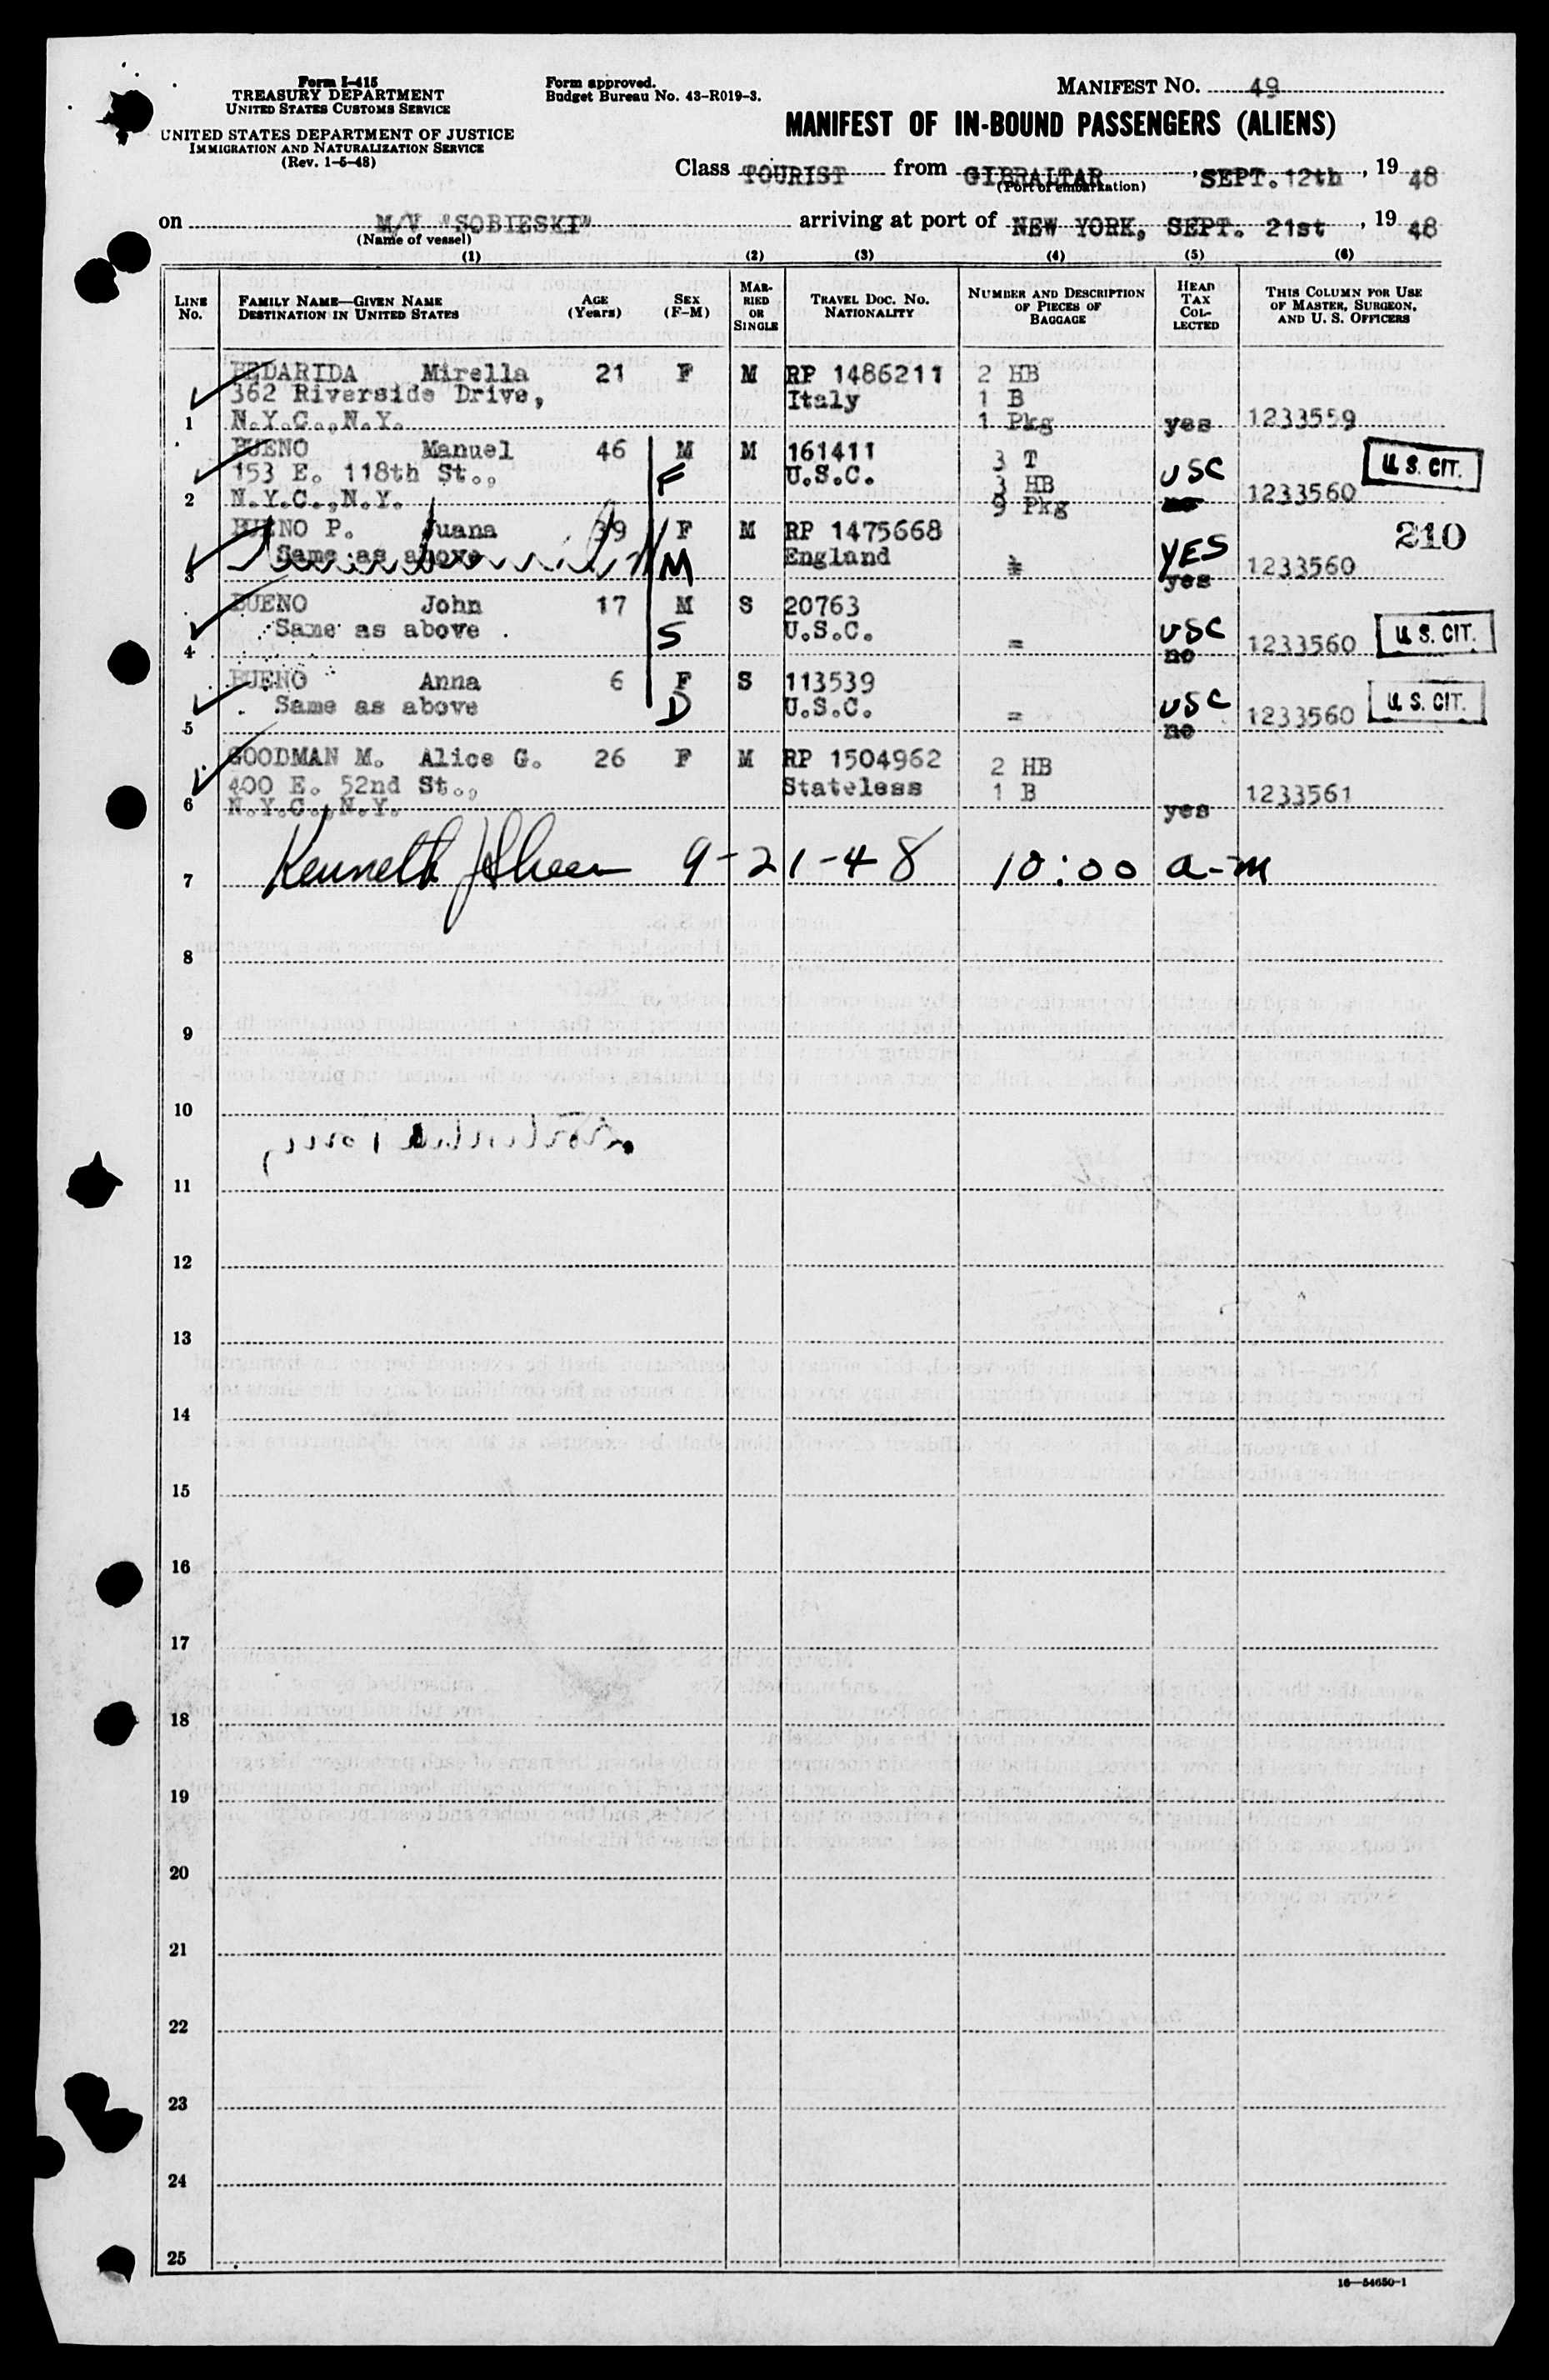 Form I-415
TREASURY DEPARTMENT
UNITED STATES CUSTOMS SERVICE
UNITED STATES DEPARTMENT OF JUSTICE
IMMIGRATION AND NATURALIZATION SERVICE
(Rev. 1-5-48)
Form approved.
Budget Bureau No. 43-R019-3.
MANIFEST NO. 49
MANIFEST OF IN-BOUND PASSENGERS (ALIENS)
Class TOURIST from GIBRALTAR, SEPT. 12th, 19 48
(Port of embarkation)
on M/V "SOBIESKI" arriving at port of NEW YORK, SEPT. 21st, 19 48
(Name of vessel)
(1) (2) (3) (4) (5) (6)
LINE No. FAMILY NAME—GIVEN NAME DESTINATION IN UNITED STATES AGE (Years) SEX (F-M) MARRIED OR SINGLE TRAVEL DOC. NO. NATIONALITY NUMBER AND DESCRIPTION OF PIECES OF BAGGAGE HEAD TAX COLLECTED THIS COLUMN FOR USE OF MASTER, SURGEON, AND U. S. OFFICERS
BEDARIDA Mirella 21 F M RP 1486211 2 HB
362 Riverside Drive, Italy 1 B
1 N.Y.C.,N.Y. 1 Pkg yes 1233559
BUENO Manuel 46 M M 161411 3 T
153 E. 118th St., F U.S.C. 3 HB USC U. S. CIT.
2 N.Y.C.,N.Y. 9 Pkg 1233560
BUENO P. Juana 39 F M RP 1475668 210
Same as above M England YES
3 yes 1233560
BUENO John 17 M S 20763
Same as above S U.S.C. = USC U. S. CIT.
4 no 1233560
BUENO Anna 6 F S 113539
Same as above D U.S.C. = USC U. S. CIT.
5 no 1233560
GOODMAN M. Alice G. 26 F M RP 1504962 2 HB
400 E. 52nd St., Stateless 1 B 1233561
6 N.Y.C.,N.Y. yes
7 Kenneth 9-21-48 10:00 a-m
8
9
10
11
12
13
14
15
16
17
18
19
20
21
22
23
24
25
16—54650-1